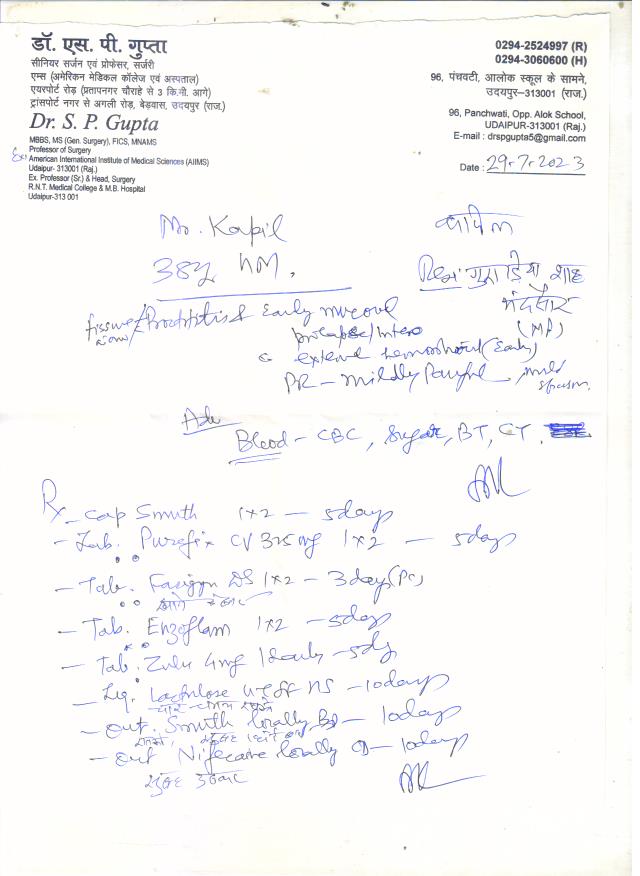 डॉ. एस. पी. गुप्ता
सीनियर सर्जन एवं प्रोफेसर, सर्जरी
एम्स (अमेरिकन मेडिकल कॉलेज एवं अस्पताल)
एयरपोर्ट रोड़ (प्रतापनगर चौराहे से 3 कि.मी. आगे)
ट्रांसपोर्ट नगर से अगली रोड़, बेड़वास, उदयपुर (राज.)
Dr. S. P. Gupta
MBBS, MS (Gen. Surgery), FICS, MNAMS
Professor of Surgery
Ex American International Institute of Medical Sciences (AIIMS)
Udaipur- 313001 (Raj.)
Ex. Professor (Sr.) & Head, Surgery
R.N.T. Medical College & M.B. Hospital
Udaipur-313 001
0294-2524997 (R)
0294-3060600 (H)
96, पंचवटी, आलोक स्कूल के सामने,
उदयपुर-313001 (राज.)
96, Panchwati, Opp. Alok School,
UDAIPUR-313001 (Raj.)
E-mail : drspgupta5@gmail.com
Date : 29.7.2023
Mr. Kapil
38y
मंदसौर
(MP)
fissure / Proctitis & Early
prolapse / Intero
extend hemorrhoid (Early)
PR - mildly Painful, mild spasm
Adv
Blood - CBC, Sugar, BT, CT,
Rx
- Cap Smuth 1x2 - 5days
- Tab. CV 325 mg 1x2 - 5days
- Tab. Fasigyn DS 1x2 - 3days (PC)
- Tab. Enzoflam 1x2 - 5days
- Tab. Zulu 4mg 1daily - 5dy
- Liq. Lactulose HS - 10days
- Oint. Smuth locally BD - 10days
- Oint Nifecaine locally - 10days